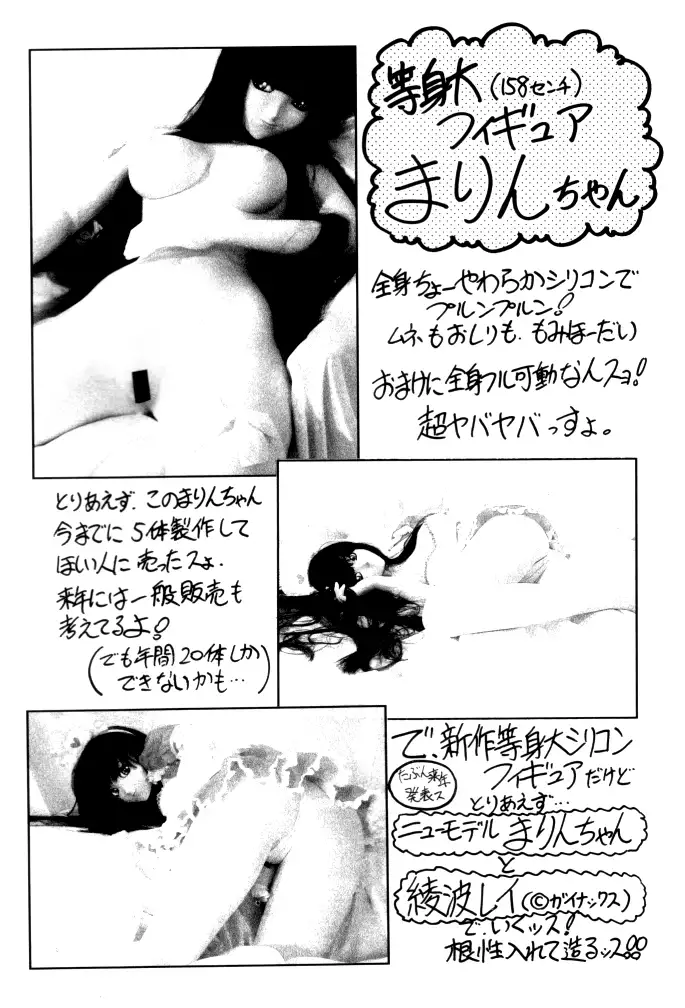 等身大(158センチ)
フィギュア
まりんちゃん
全身ちょーやわらかシリコンで
プルンプルン!
ムネもおしりも、もみほーだい
おまけに全身フル可動なんスョ!
超ヤバヤバっすょ。
とりあえず、このまりんちゃん
今までに5体製作して
ほしい人に売ったスョ.
来年には一般販売も
考えてるよ!
(でも年間20体しか
できないかも…)
で、新作等身大シリコン
フィギュアだけど
たぶん来年
発表ス
とりあえず…
ニューモデル まりんちゃん
と
綾波レイ(©ガイナックス)
で、いくッス!
根性入れて造るッス!!